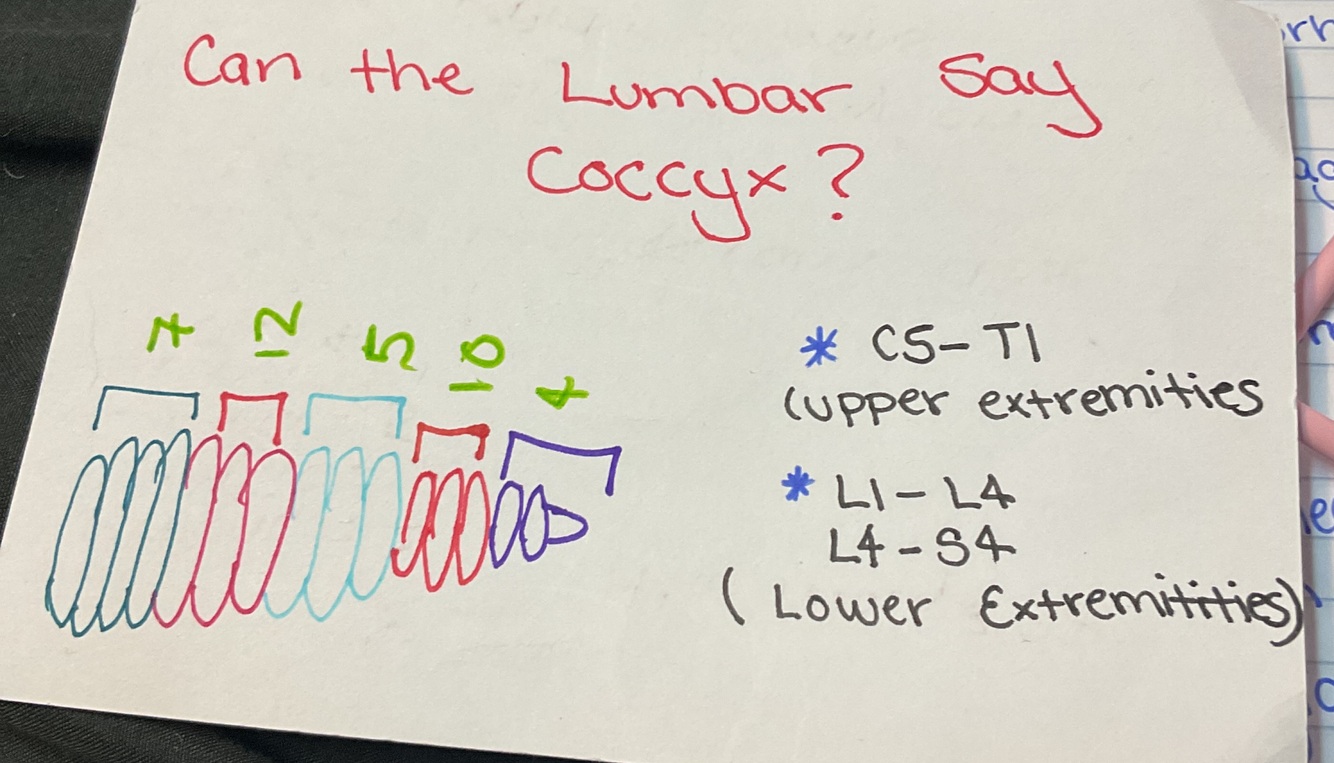 Can the Lumbar Say
Coccyx?
7 12 5 10 4
* C5-T1
(upper extremities
* L1-L4
L4-S4
(Lower Extremitities)